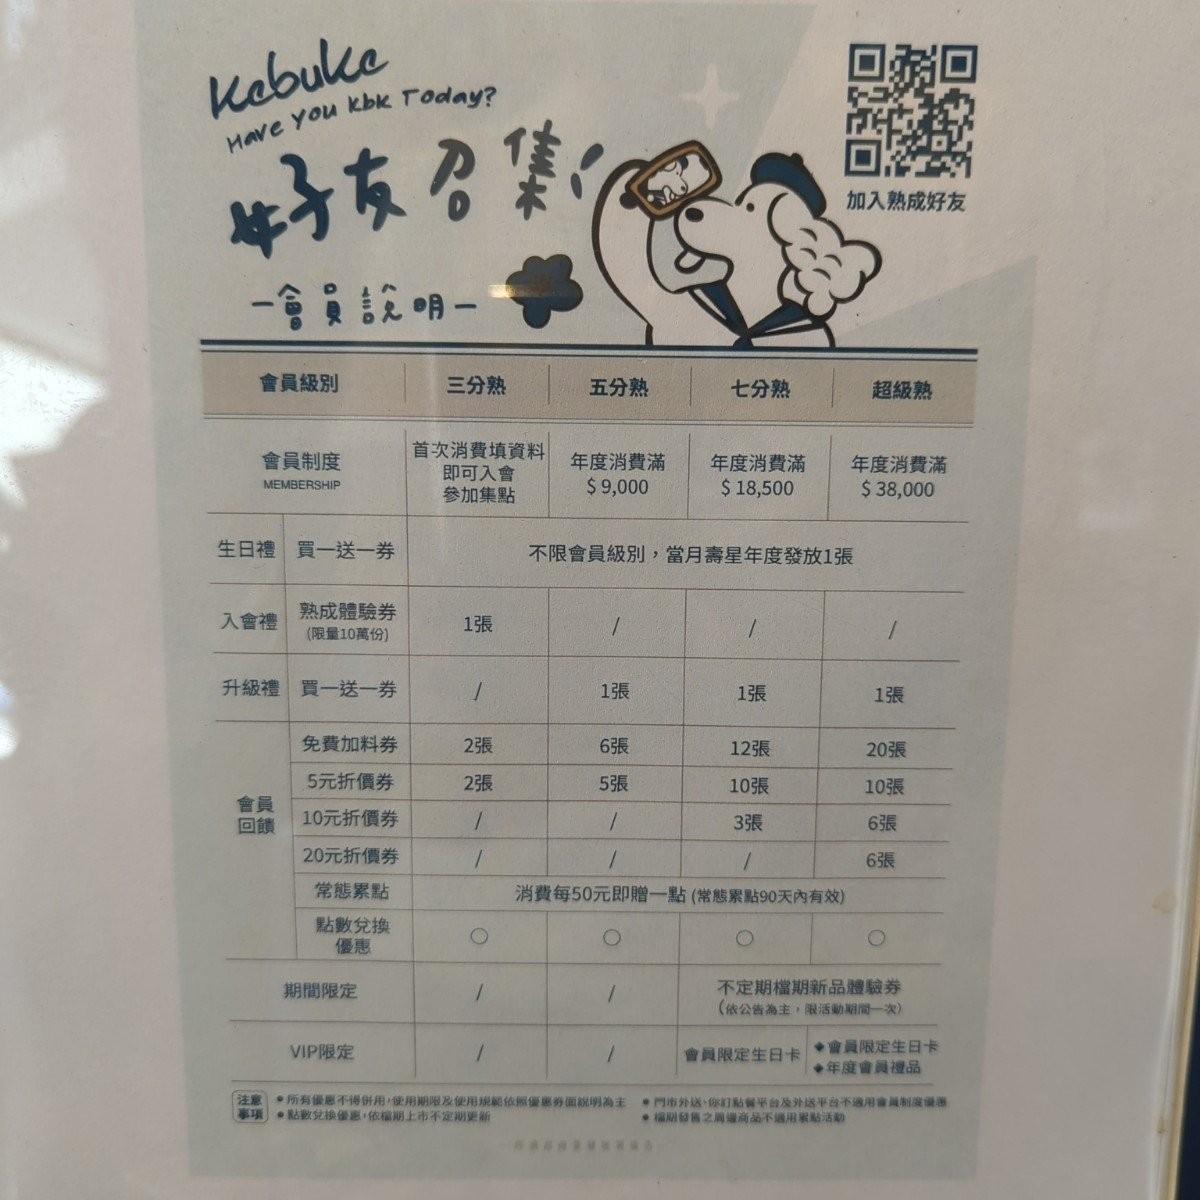 Kebuke
Have You KBK Today?
好友召集!
加入熟成好友
—會員說明—
會員級別 三分熟 五分熟 七分熟 超級熟
會員制度
MEMBERSHIP
首次消費填資料
即可入會
參加集點
年度消費滿
$ 9,000
年度消費滿
$ 18,500
年度消費滿
$ 38,000
生日禮 買一送一券 不限會員級別，當月壽星年度發放1張
入會禮 熟成體驗券
(限量10萬份)
1張 / / /
升級禮 買一送一券 / 1張 1張 1張
會員
回饋
免費加料券 2張 6張 12張 20張
5元折價券 2張 5張 10張 10張
10元折價券 / / 3張 6張
20元折價券 / / / 6張
常態累點 消費每50元即贈一點 (常態累點90天內有效)
點數兌換
優惠
○ ○ ○ ○
期間限定 / / 不定期檔期新品體驗券
(依公告為主，限活動期間一次)
VIP限定 / / 會員限定生日卡
◆會員限定生日卡
◆年度會員禮品
注意
事項
●所有優惠不得併用，使用期限及使用規範依照優惠券面說明為主
●點數兌換優惠，依檔期上市不定期更新
●門市外送、你訂點餐平台及外送平台不適用會員制度優惠
●檔期發售之周邊商品不適用累點活動